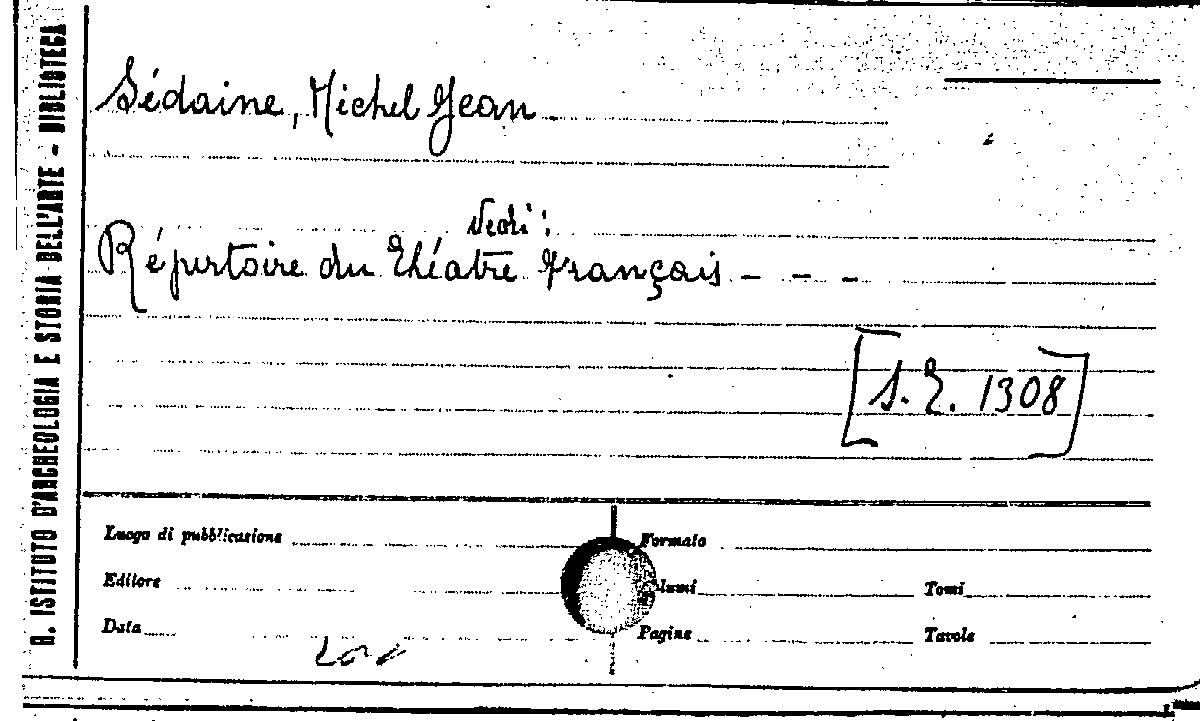 R. ISTITUTO D'ARCHEOLOGIA E STORIA DELL'ARTE - BIBLIOTECA
Sédaine, Michel Jean
Vedi:
Répertoire du Théatre Français - - -
[S. E. 1308]
Luogo di pubblicazione
Formato
Editore
Volumi
Tomi
Data
Pagine
Tavole